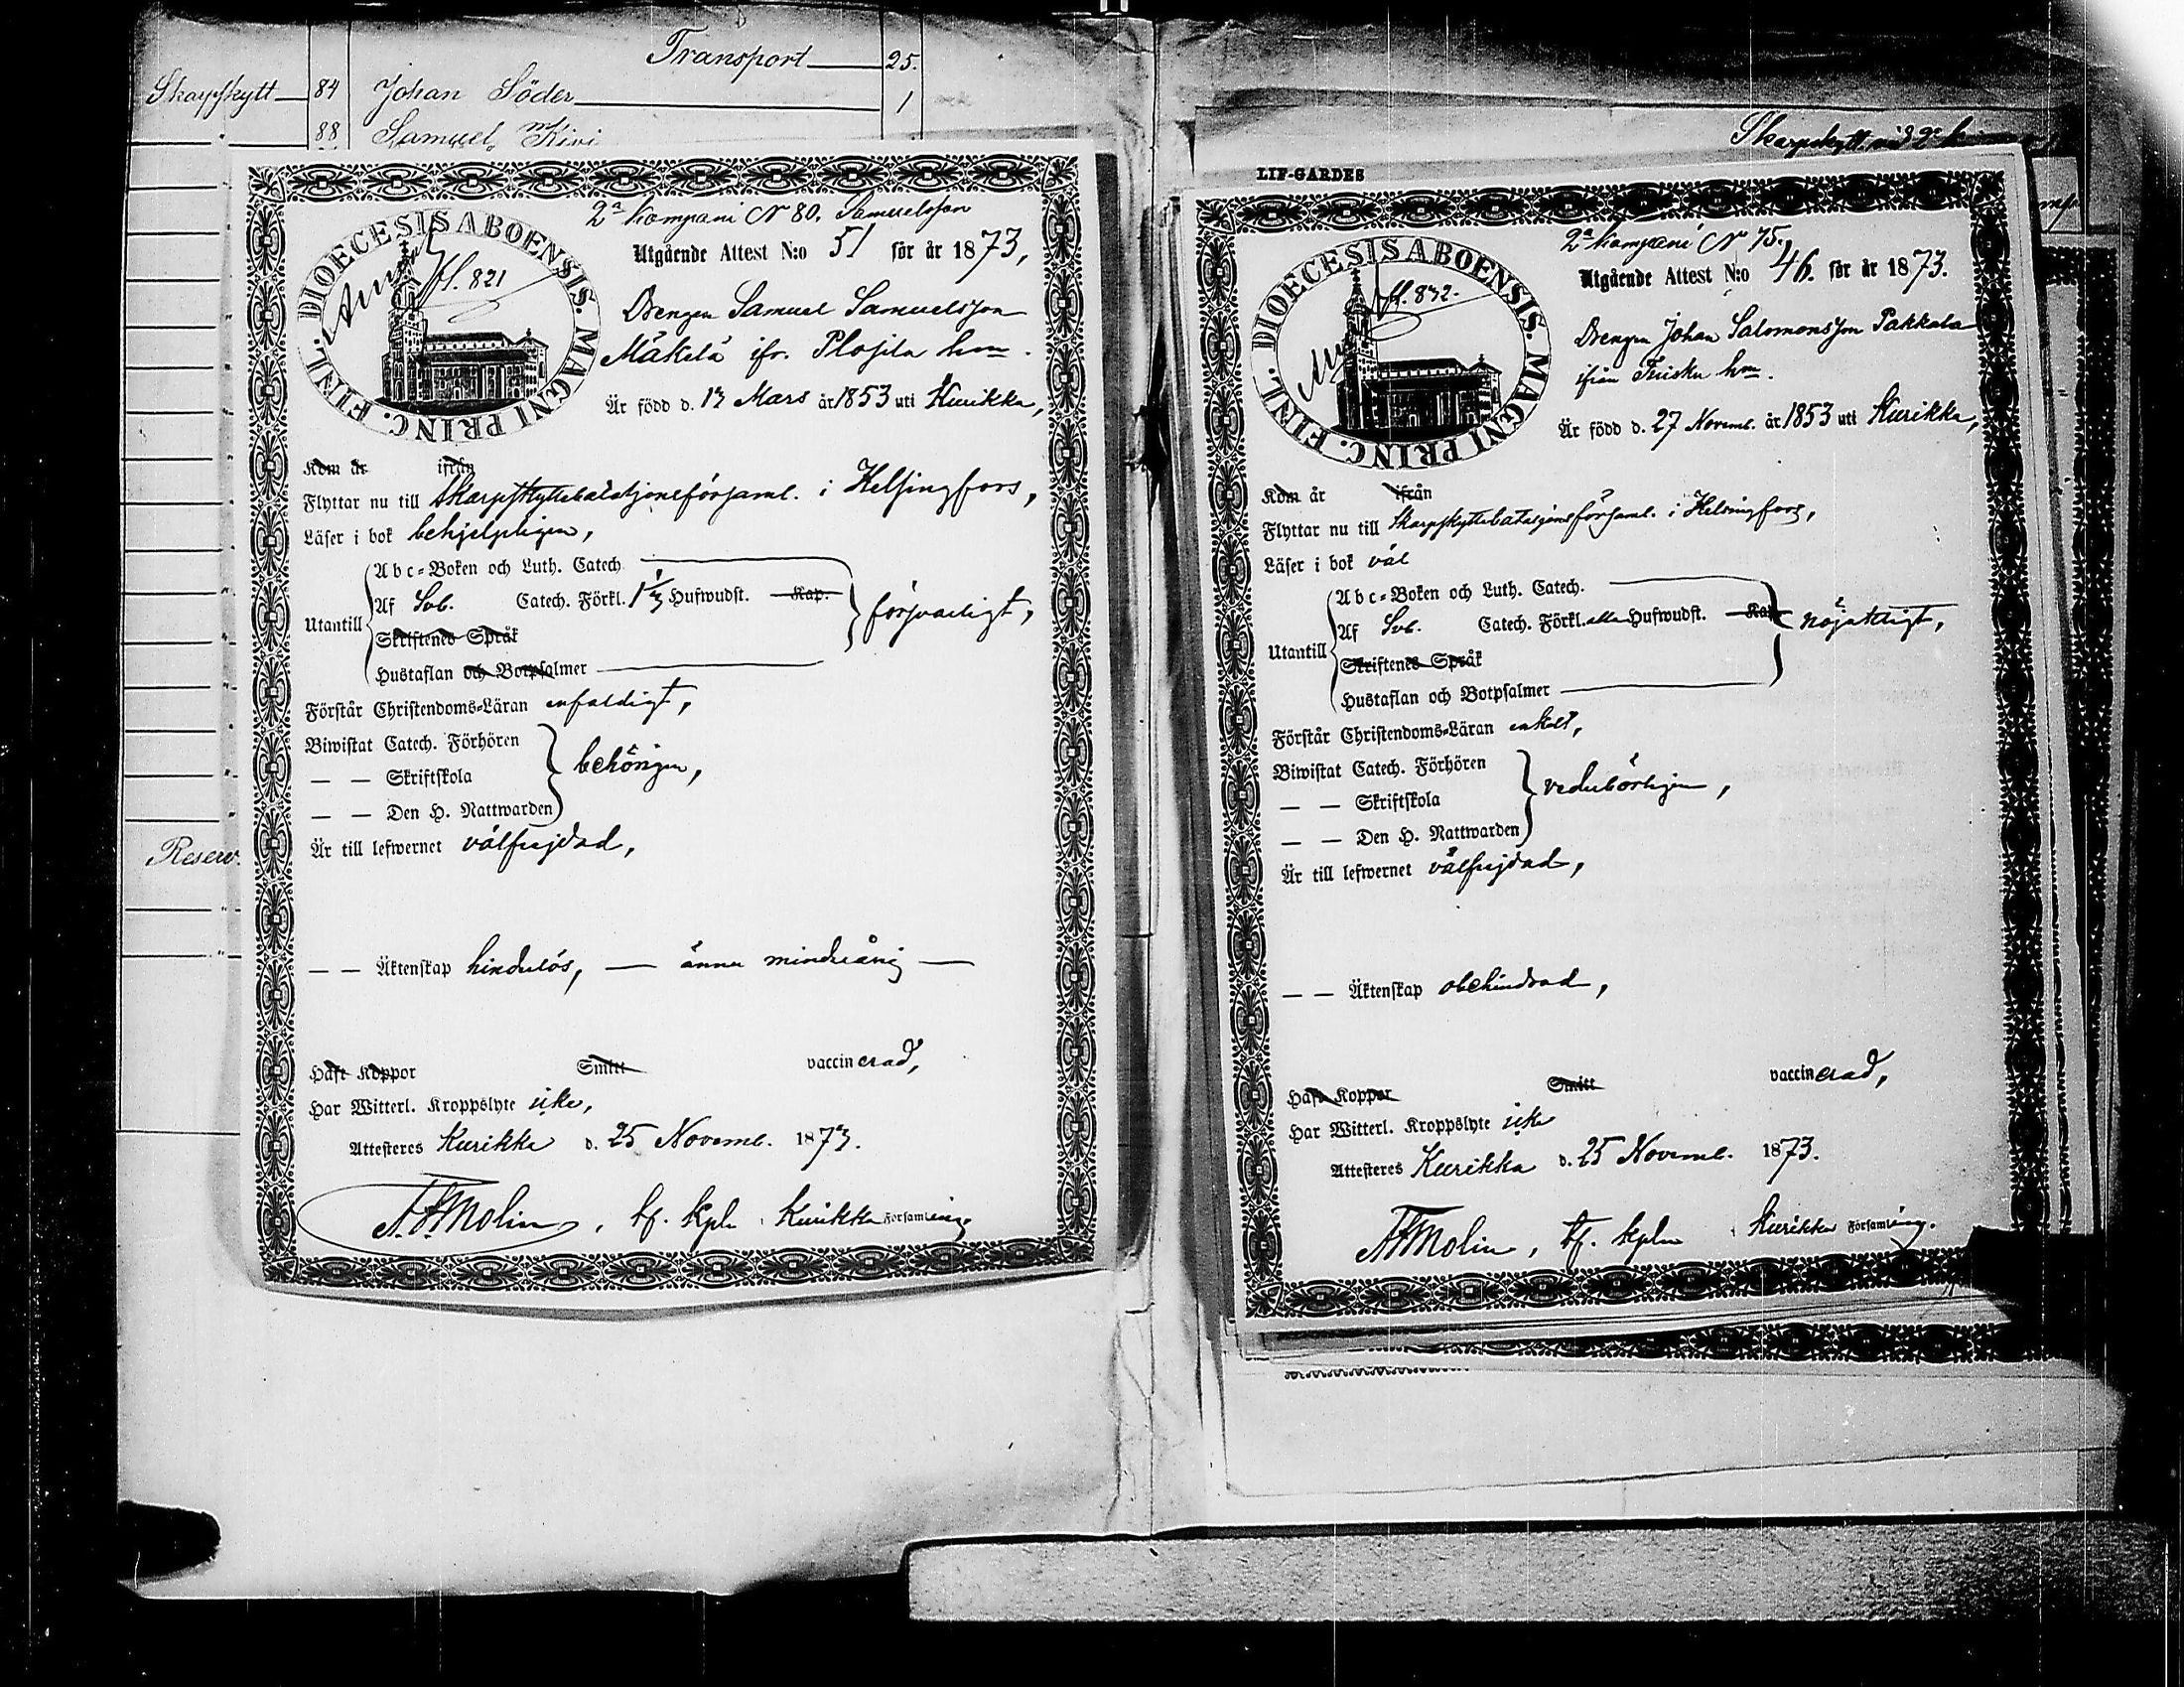 Transport 25.
Skarpskytt 84 Johan Söder 1
88 Samuel Kivi
Reserv.
2a Kompani No 80. Samuelsson
DIOECESIS ABOENSIS. MAGNI PRINC. FINL.
fl. 821
Utgående Attest N:o 51 för år 1873,
Drengen Samuel Samuelsson
Mäkelä ifr. Plosila hmn.
Är född d. 13 Mars år 1853 uti Kurikka,
Kom år ifrån
Flyttar nu till Skarpskyttebataljonsförsaml. i Helsingfors,
Läser i bok behjelpligen,
Abc-Boken och Luth. Catech.
Utantill Af Svb. Catech. Förkl. 1 1/3 Hufwudst. Kap. försvarligt,
Skriftenes Språk
Hustaflan och Botpsalmer
Förstår Christendoms-Läran enfaldigt,
Biwistat Catech. Förhören
— — Skriftskola behörigen,
— — Den H. Nattwarden
Är till lefwernet välfrejdad,
— — Äktenskap hinderlös, — ännu minderårig —
Haft Koppor Smitt vaccinerad,
Har Witterl. Kroppslyte icke,
Attesteres Kurikka d. 25 Novemb. 1873.
A. F. Molin, tf. kpln i Kurikka Församling.
LIF-GARDES
2a Kompani No 75.
DIOECESIS ABOENSIS. MAGNI PRINC. FINL.
fl. 832.
Utgående Attest N:o 46. för år 1873.
Drengen Johan Salomonsson Pakkala
ifrån Friisku hmn.
Är född d. 27 Novemb. år 1853 uti Kurikka,
Kom år ifrån
Flyttar nu till Skarpskyttebataljonsförsaml. i Helsingfors,
Läser i bok väl
Abc-Boken och Luth. Catech.
Utantill Af Svb. Catech. Förkl. alla Hufwudst. Kap. nöjaktigt,
Skriftenes Språk
Hustaflan och Botpsalmer
Förstår Christendoms-Läran enkelt,
Biwistat Catech. Förhören
— — Skriftskola vederbörligen,
— — Den H. Nattwarden
Är till lefwernet välfrejdad,
— — Äktenskap obehindrad,
Haft Koppor Smitt vaccinerad,
Har Witterl. Kroppslyte icke
Attesteres Kurikka d. 25 Novemb. 1873.
A F Molin, tf. kpln i Kurikka Församling.